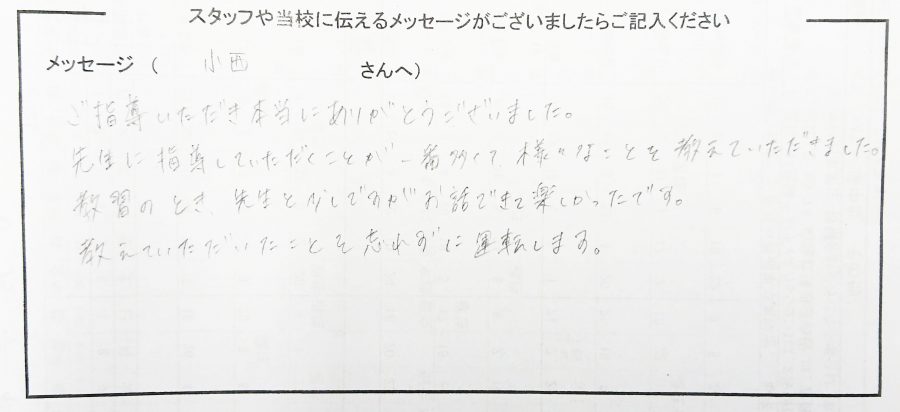 スタッフや当校に伝えるメッセージがございましたらご記入ください
メッセージ ( 小西 さんへ)
ご指導いただき本当にありがとうございました。
先生に指導していただくことが一番多くて、様々なことを教えていただきました。
教習のとき、先生と少しですがお話できて楽しかったです。
教えていただいたことを忘れずに運転します。